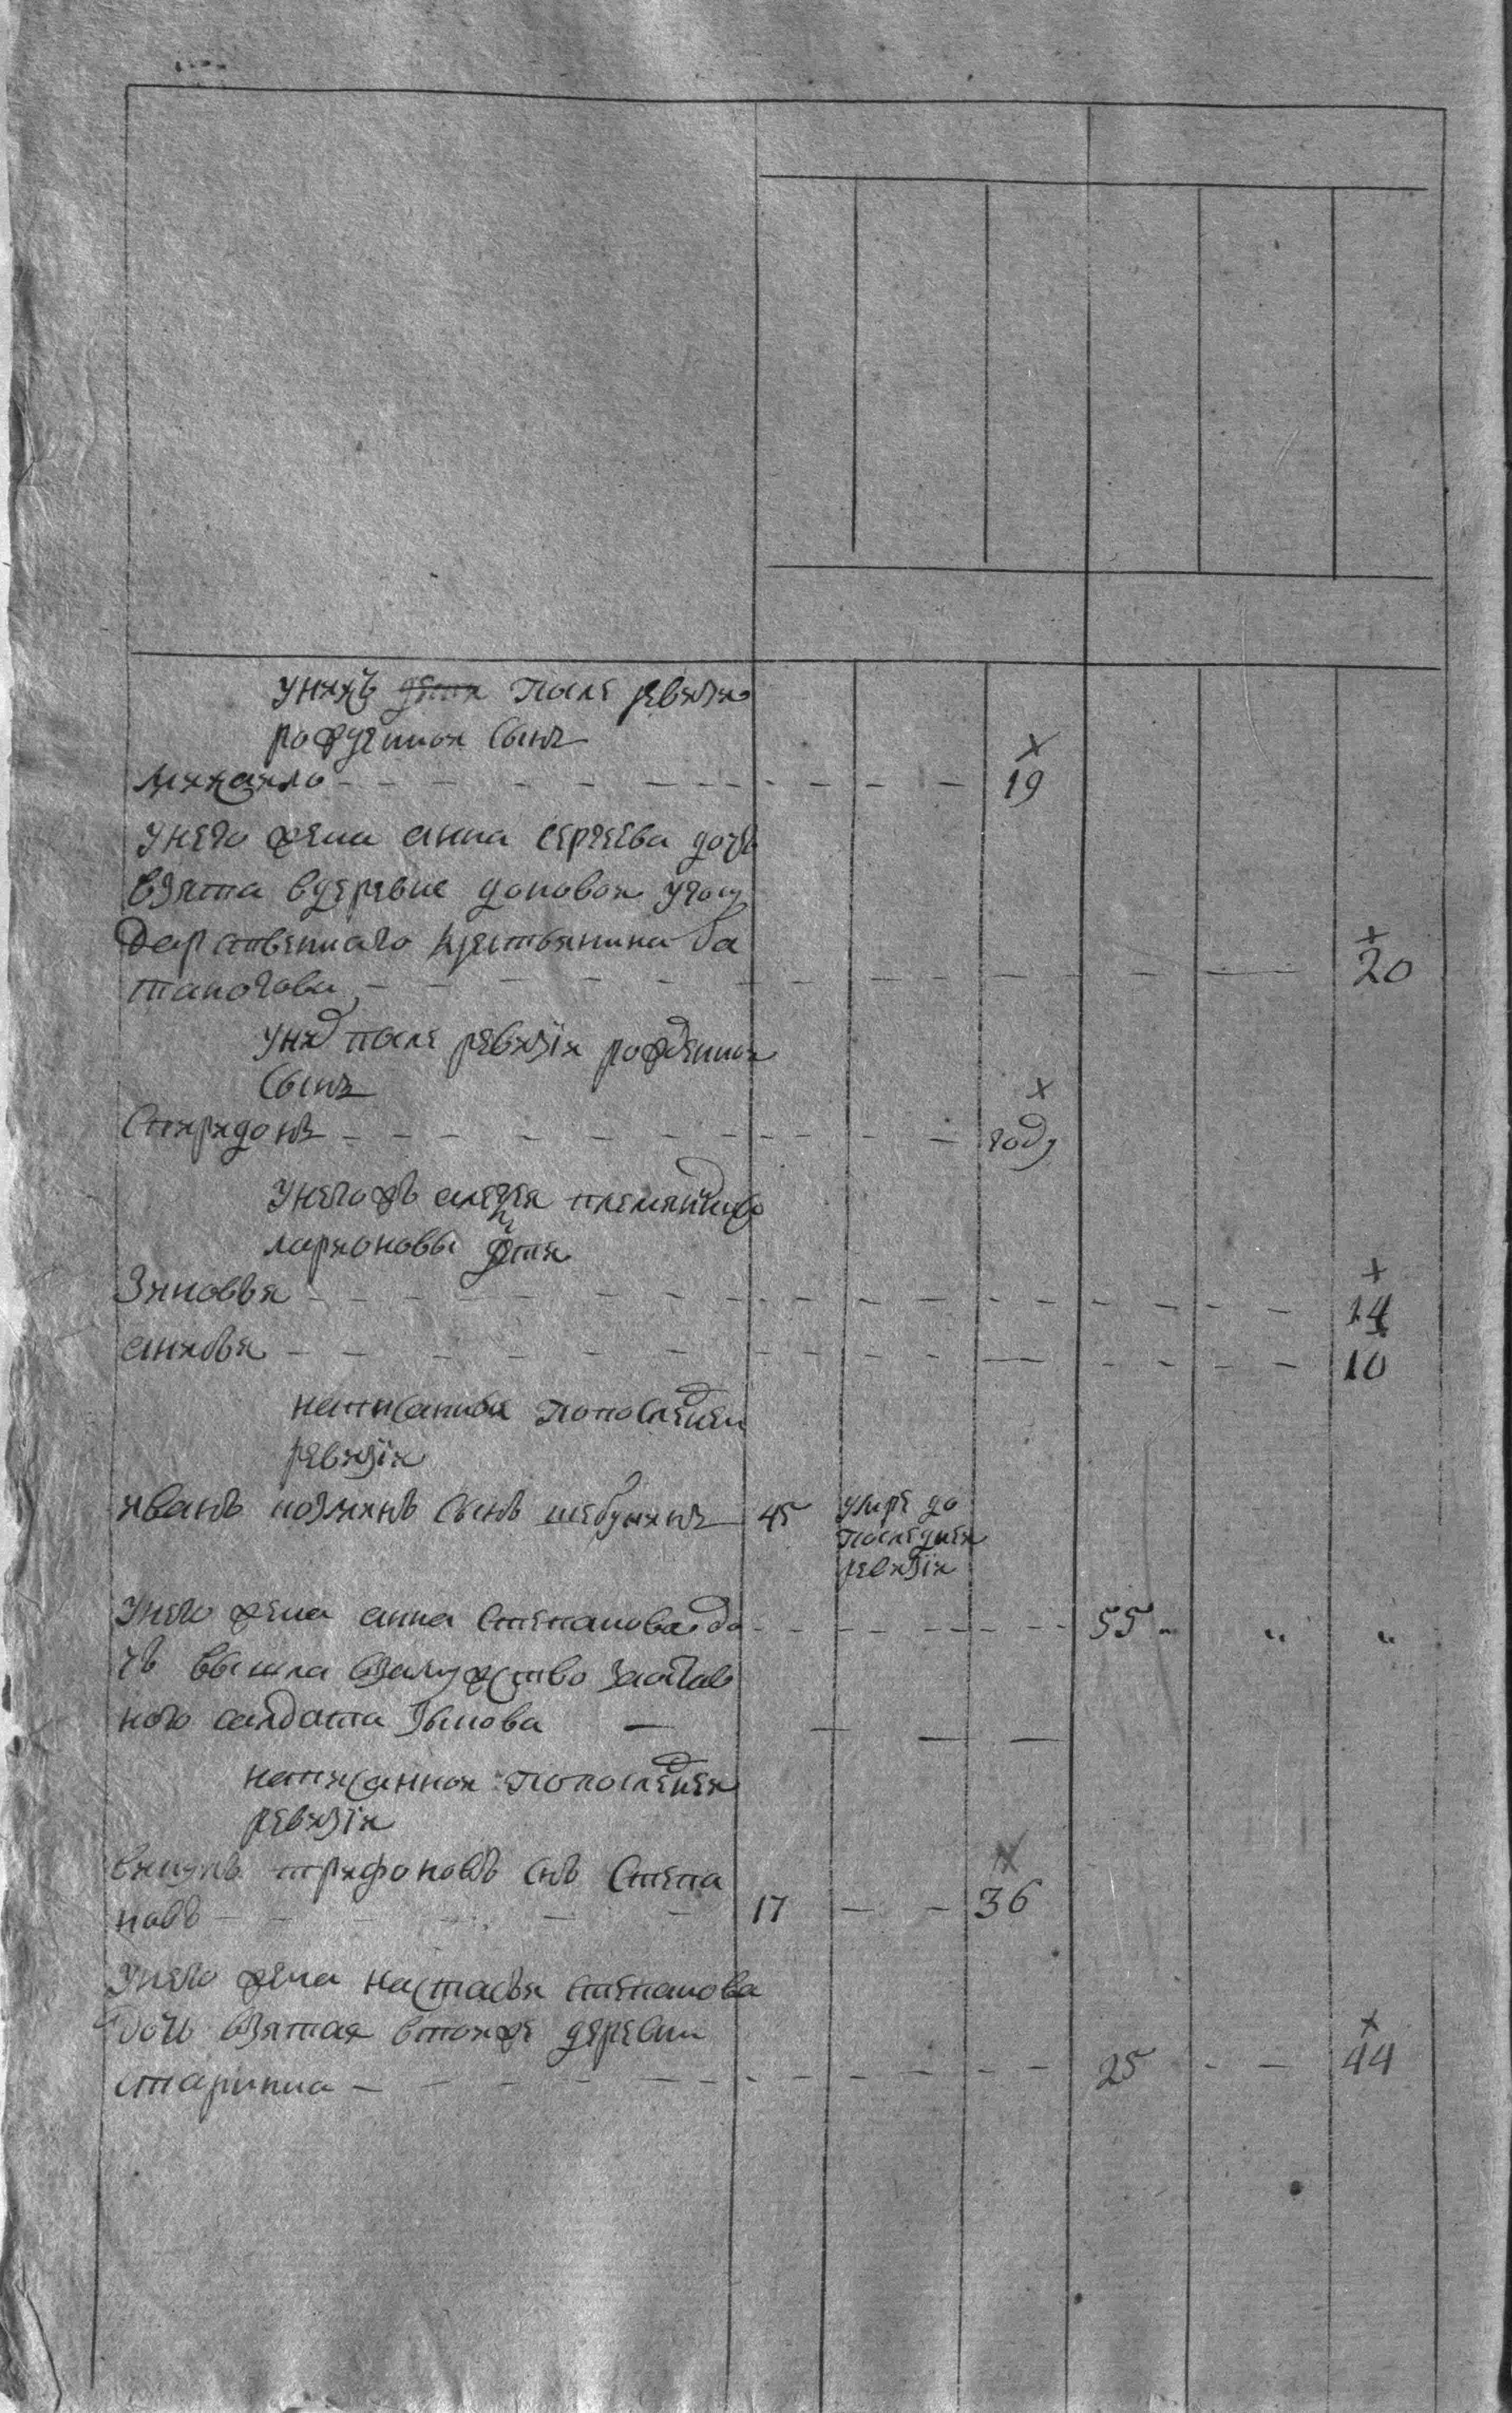 у нихъ после ревизiи
рожденной сынъ
михайло 19
у него жена анна сергеева дочь
взята в деревне поповой у госу
дарственнаго крестьянина ба
таногова 20
у них после ревизiи рожденной
сынъ
спиридонъ году
у него жъ алексея племянницы
ларионовы дети
Зиновья 14
анисья 10
написанные по последней
ревизiи
иванъ козминъ сынъ шебунинъ 45 умре до
последней
ревизiи
у него жена анна степанова до 55 " "
чь вышла в замужство за отстав
ного салдата
написанной по последней
ревизiи
викулъ трифоновъ снъ степа
новъ 17 36
у него жена настасья степанова
дочь взятая в той же деревни
старинна 25 44